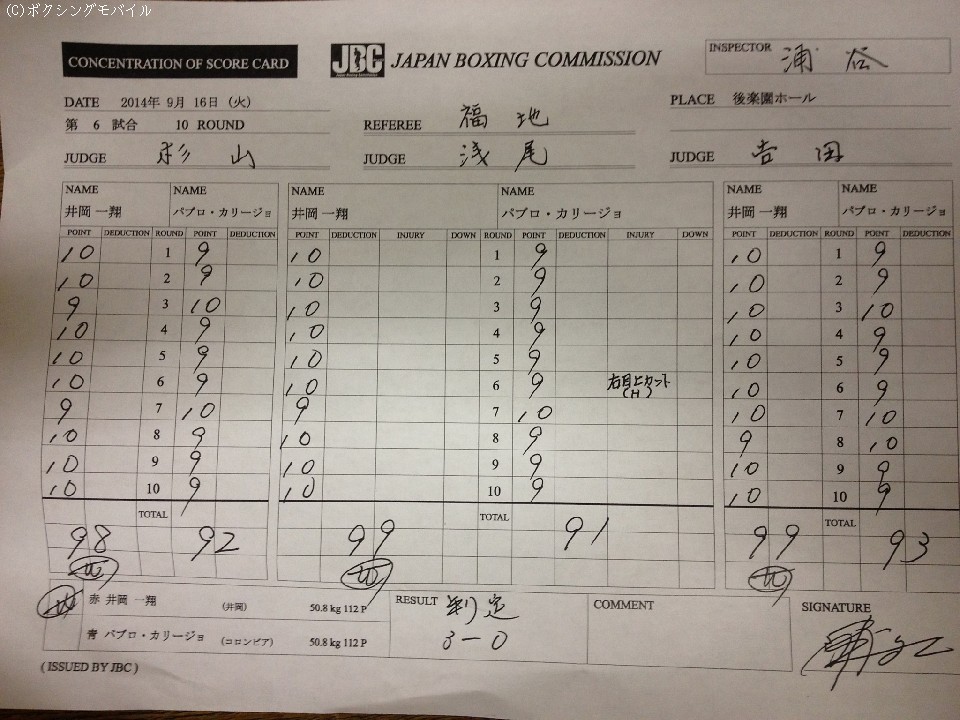 (C)ボクシングモバイル
CONCENTRATION OF SCORE CARD JBC JAPAN BOXING COMMISSION INSPECTOR 浦谷
DATE 2014年 9月 16日 (火) PLACE 後楽園ホール
第 6 試合 10 ROUND REFEREE 福地
JUDGE 杉山 JUDGE 浅尾 JUDGE 吉田
NAME NAME NAME NAME NAME NAME
井岡 一翔 パブロ・カリージョ 井岡 一翔 パブロ・カリージョ 井岡 一翔 パブロ・カリージョ
POINT DEDUCTION ROUND POINT DEDUCTION POINT DEDUCTION INJURY DOWN ROUND POINT DEDUCTION INJURY DOWN POINT DEDUCTION ROUND POINT DEDUCTION
10 1 9 10 1 9 10 1 9
10 2 9 10 2 9 10 2 9
9 3 10 10 3 9 10 3 10
10 4 9 10 4 9 10 4 9
10 5 9 10 5 9 10 5 9
10 6 9 10 6 9 右目上カット (H) 10 6 9
9 7 10 9 7 10 10 7 10
10 8 9 10 8 9 9 8 10
10 9 9 10 9 9 10 9 9
10 10 9 10 10 9 10 10 9
TOTAL TOTAL TOTAL
98 92 99 91 99 93
赤 井岡 一翔 (井岡) 50.8 kg 112 P RESULT 判定 COMMENT SIGNATURE
青 パブロ・カリージョ (コロンビア) 50.8 kg 112 P 3-0
( ISSUED BY JBC )